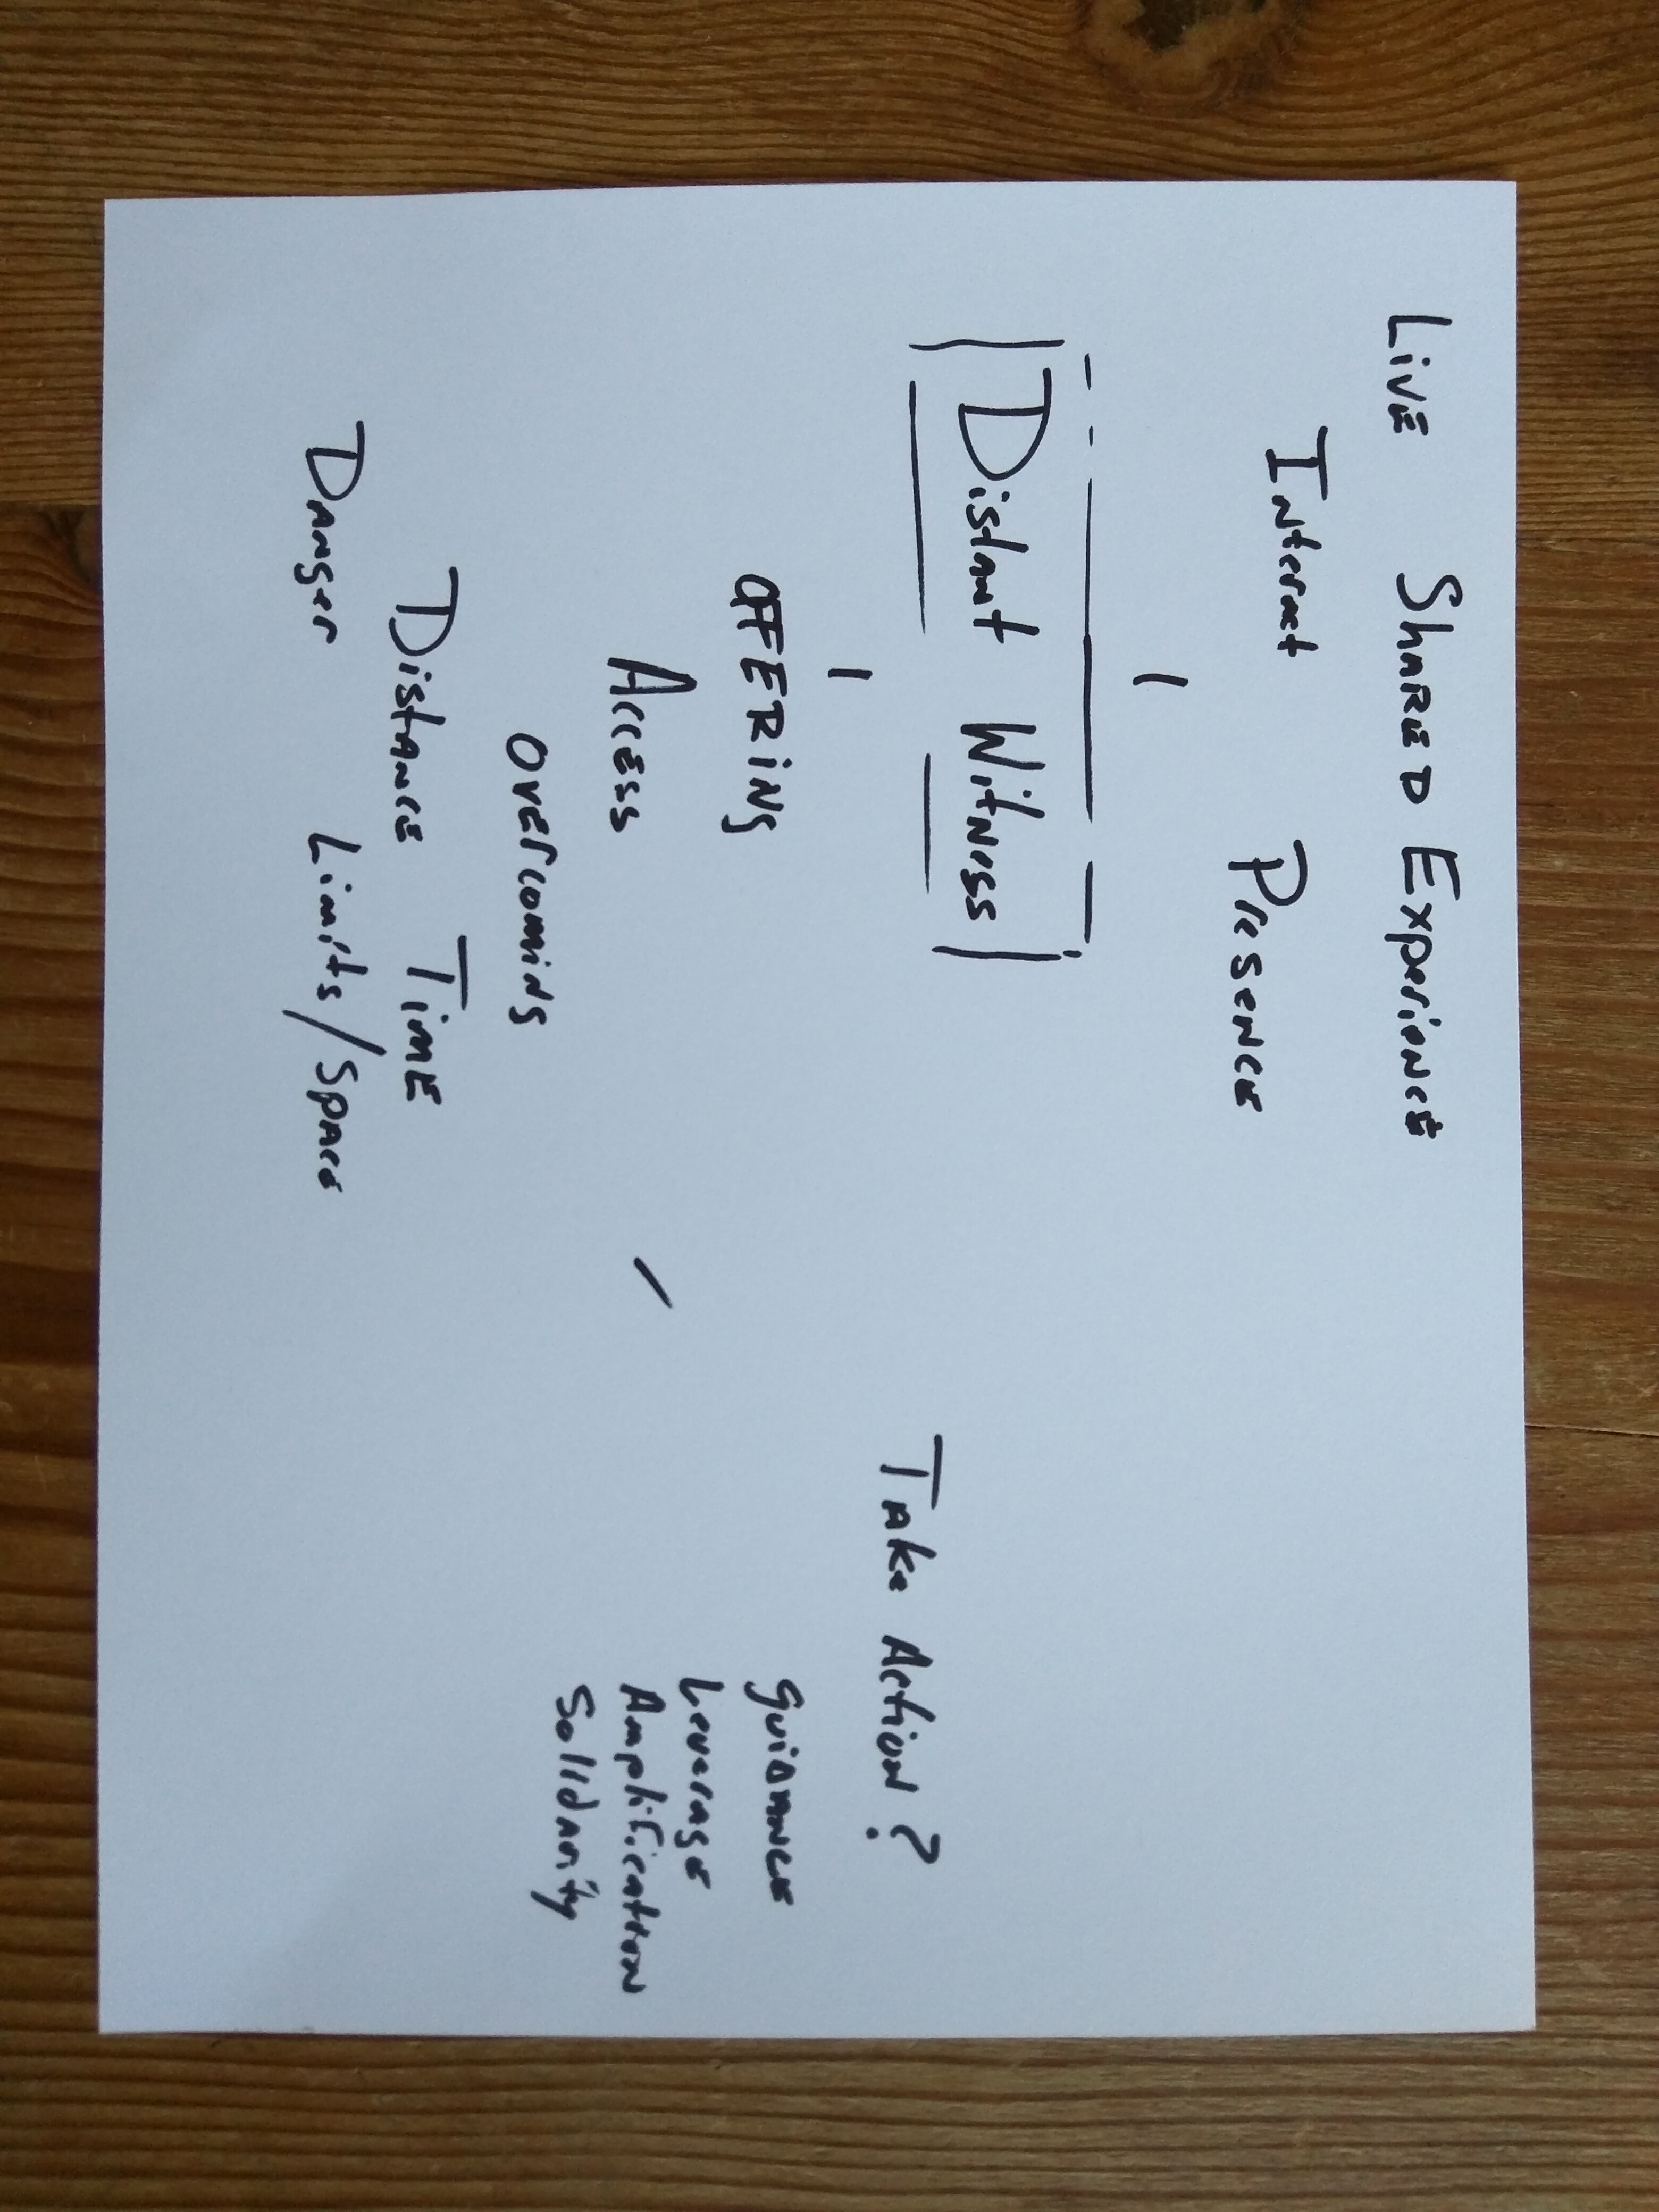 LiVE SHARED Experience
Presence
Distant Witness
OFFERING
Access
Overcoming
Distance Time
Danger Limits/Space
Take Action?
Guidance
Leverage
Amplification
Solidarity